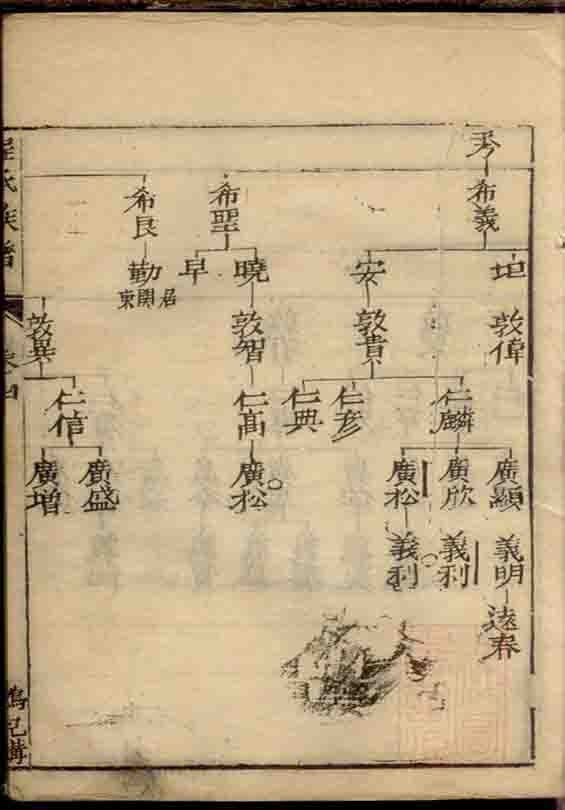 秀
希義
坦
敦偉
仁麟
廣顯
義明
遠春
廣欣
義利
廣松
義利
仁彥
仁典
安
敦貴
希聖
曉
敦智
仁高
廣松
早
希良
勤
居関東
敦異
仁信
廣盛
廣增
氏族譜